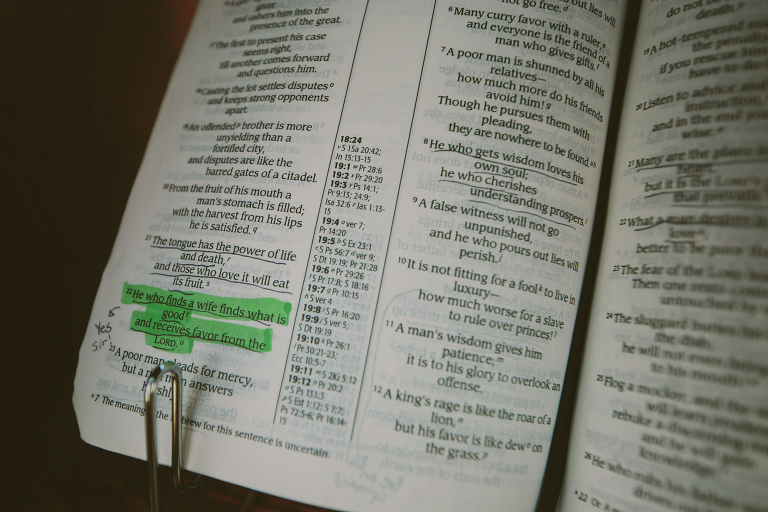 and ushers him into the
presence of the great.
¹⁷The first to present his case
seems right,
till another comes forward
and questions him.
¹⁸Casting the lot settles disputes
and keeps strong opponents
apart.
¹⁹An offended brother is more
unyielding than a
fortified city,
and disputes are like the
barred gates of a citadel.
²⁰From the fruit of his mouth a
man's stomach is filled;
with the harvest from his lips
he is satisfied. q
²¹The tongue has the power of life
and death, r
and those who love it will eat
its fruit. s
²²He who finds a wife finds what is
good t
and receives favor from the
LORD. u
yes
sir
²³A poor man pleads for mercy,
but a man answers
7 The meaning the Hebrew for this sentence is uncertain.
18:24
v S 1Sa 20:42;
Jn 15:13-15
19:1 w Pr 28:6
19:2 x Pr 29:20
19:3 y Ps 14:1;
Pr 9:13; 24:9;
Isa 32:6 z Jas 1:13-
15
19:4 a ver 7;
Pr 14:20
19:5 b S Ex 23:1
c S Ps 56:7 d ver 9;
S Dt 19:19; Pr 21:28
19:6 e Pr 29:26
f S Pr 17:8; S 18:16
19:7 g Pr 10:15
h S ver 4
19:8 i S Pr 16:20
19:9 j S ver 5;
S Dt 19:19
19:10 k Pr 26:1
l Pr 30:21-23;
Ecc 10:5-7
19:11 m S 2Ki 5:12
19:12 n Pr 20:2
o S Ps 133:3
p S Est 1:12; 5 7:7;
Ps 72:5-6; Pr 16:14-
15
not go free. d
⁶Many curry favor with a ruler, e
and everyone is the friend of a
man who gives gifts. f
⁷A poor man is shunned by all his
relatives—
how much more do his friends
avoid him! g
Though he pursues them with
pleading,
they are nowhere to be found. h
⁸He who gets wisdom loves his
own soul;
he who cherishes
understanding prospers. i
⁹A false witness will not go
unpunished,
and he who pours out lies will
perish. j
¹⁰It is not fitting for a fool k to live in
luxury—
how much worse for a slave
to rule over princes! l
¹¹A man's wisdom gives him
patience; m
it is to his glory to overlook an
offense.
¹²A king's rage is like the roar of a
lion, n
but his favor is like dew o on
the grass. p
do not
death.
¹⁹A hot-tempered
the penalty
if you rescue him
have to
²⁰Listen to advice and
instruction,
and in the end
wise.
²¹Many are the plans in
heart,
but it is the
that prevails.
²²What a man desires is
love
better to be poor
²³The fear of the
Then one rests
untouched
²⁴The sluggard
the dish;
he will not even
to his mouth
²⁵Flog a mocker, and the
will
rebuke a
and he will gain
knowledge.
²⁶He who robs his
drives
22 Or